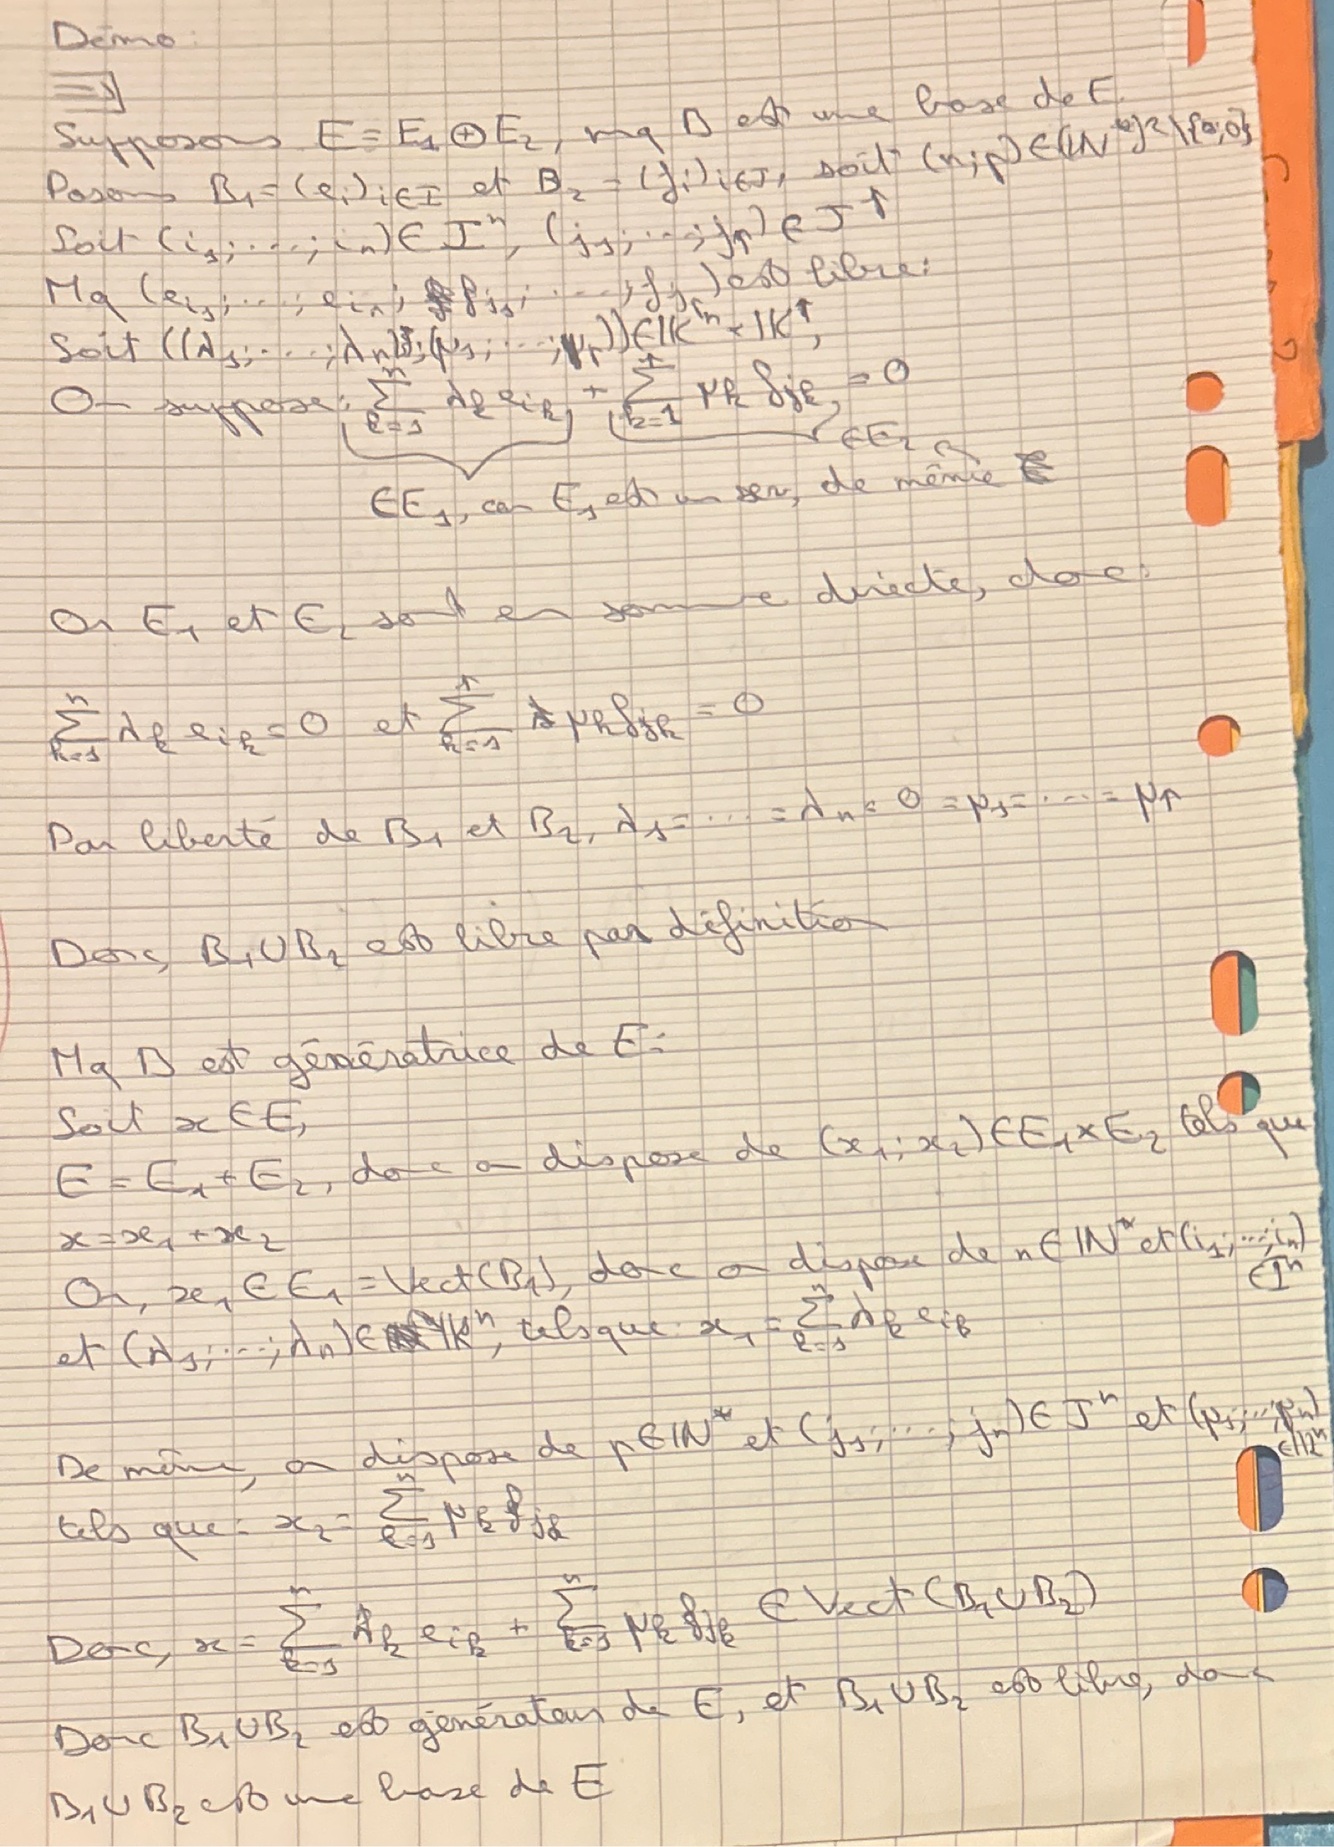 Démo:
⇒]
Supposons E = E₁ ⊕ E₂, mq B est une base de E.
Posons B₁ = (eᵢ)ᵢ∈I et B₂ = (fᵢ)ᵢ∈J, soit (n;p) ∈ (ℕ*)² \ {0;0}
Soit (i₁; ...; iₙ) ∈ Iⁿ, (j₁; ...; jₚ) ∈ Jᵖ
Mq (e_{i₁}; ...; e_{iₙ}; f_{j₁}; ...; f_{jₚ}) est libre:
Soit ((λ₁; ...; λₙ); (μ₁; ...; μₚ)) ∈ 𝕂ⁿ × 𝕂ᵖ,
On suppose: ∑_{k=1}^{n} λₖ e_{iₖ} + ∑_{k=1}^{p} μₖ f_{jₖ} = 0
∈ E₂
∈ E₁, car E₁ est un sev, de même
Or E₁ et E₂ sont en somme directe, donc:
∑_{k=1}^{n} λₖ e_{iₖ} = 0 et ∑_{k=1}^{p} μₖ f_{jₖ} = 0
Par liberté de B₁ et B₂, λ₁ = ... = λₙ = 0 = μ₁ = ... = μₚ
Donc, B₁ ∪ B₂ est libre par définition
Mq B est génératrice de E:
Soit x ∈ E,
E = E₁ + E₂, donc on dispose de (x₁; x₂) ∈ E₁ × E₂ tels que
x = x₁ + x₂
Or, x₁ ∈ E₁ = Vect(B₁), donc on dispose de n ∈ ℕ* et (i₁; ...; iₙ) ∈ Iⁿ
et (λ₁; ...; λₙ) ∈ 𝕂ⁿ, tels que: x₁ = ∑_{k=1}^{n} λₖ e_{iₖ}
De même, on dispose de p ∈ ℕ* et (j₁; ...; jₙ) ∈ Jⁿ et (μ₁; ...; μₙ) ∈ 𝕂ⁿ
tels que: x₂ = ∑_{k=1}^{n} μₖ f_{jₖ}
Donc, x = ∑_{k=1}^{n} λₖ e_{iₖ} + ∑_{k=1}^{n} μₖ f_{jₖ} ∈ Vect(B₁ ∪ B₂)
Donc B₁ ∪ B₂ est générateur de E, et B₁ ∪ B₂ est libre, donc
B₁ ∪ B₂ est une base de E